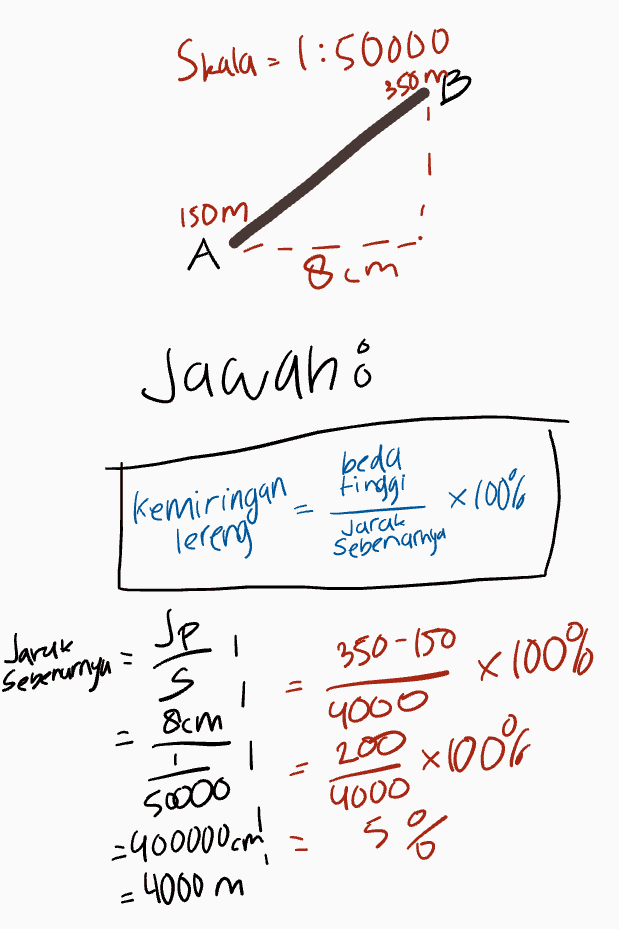 Skala = 1:50000
350 m B
150 m
A
8 cm
Jawab:
kemiringan lereng = beda tinggi / Jarak Sebenarnya × 100%
Jarak Sebenarnya = Jp / S
= 8cm / 1 / 50000
= 400000 cm
= 4000 m
= 350 - 150 / 4000 × 100%
= 200 / 4000 × 100%
= 5 %